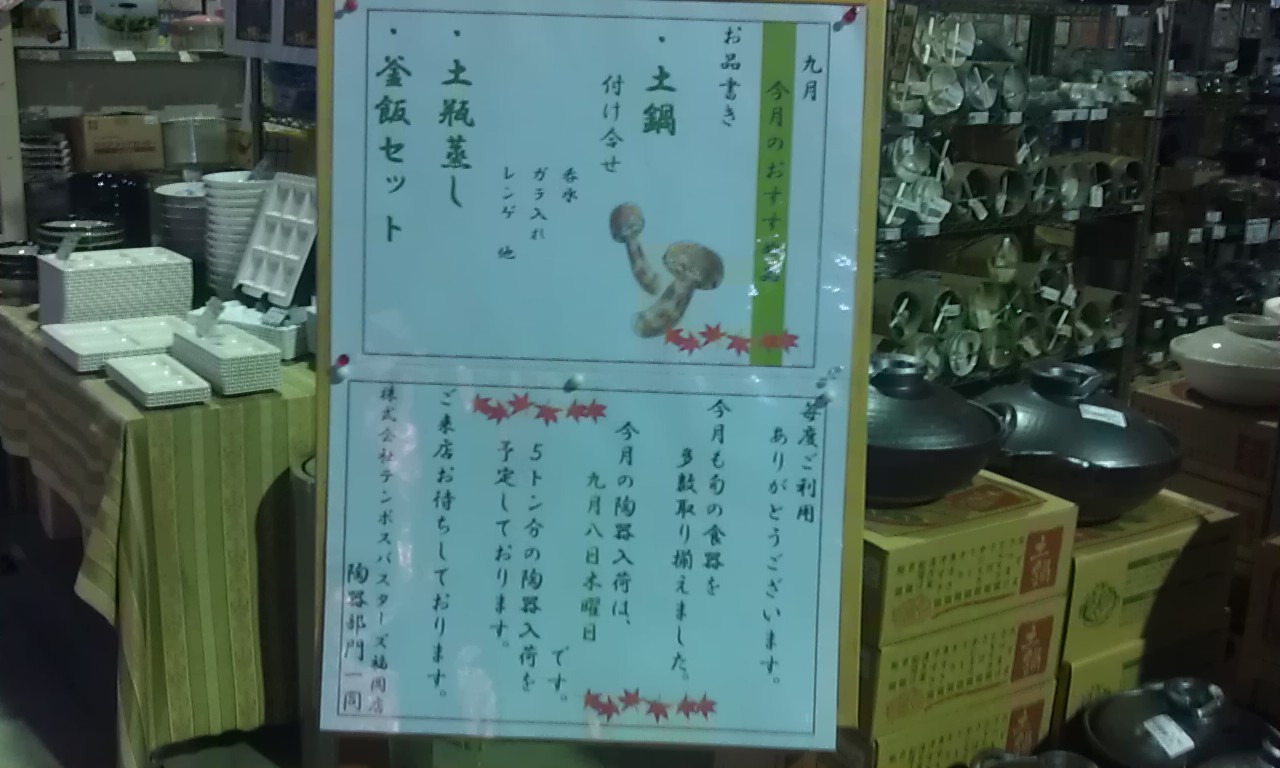 九月
今月のおすすめ品
お品書き
・土鍋
付け合せ
呑水
ガラ入れ
レンゲ 他
・土瓶蒸し
・釜飯セット
毎度ご利用
ありがとうございます。
今月も旬の食器を
多数取り揃えました。
今月の陶器入荷は、
九月八日木曜日
です。
5トン分の陶器入荷を
予定しております。
ご来店お待ちしております。
株式会社テンポスバスターズ福岡店
陶器部門一同
土鍋
土鍋
土鍋